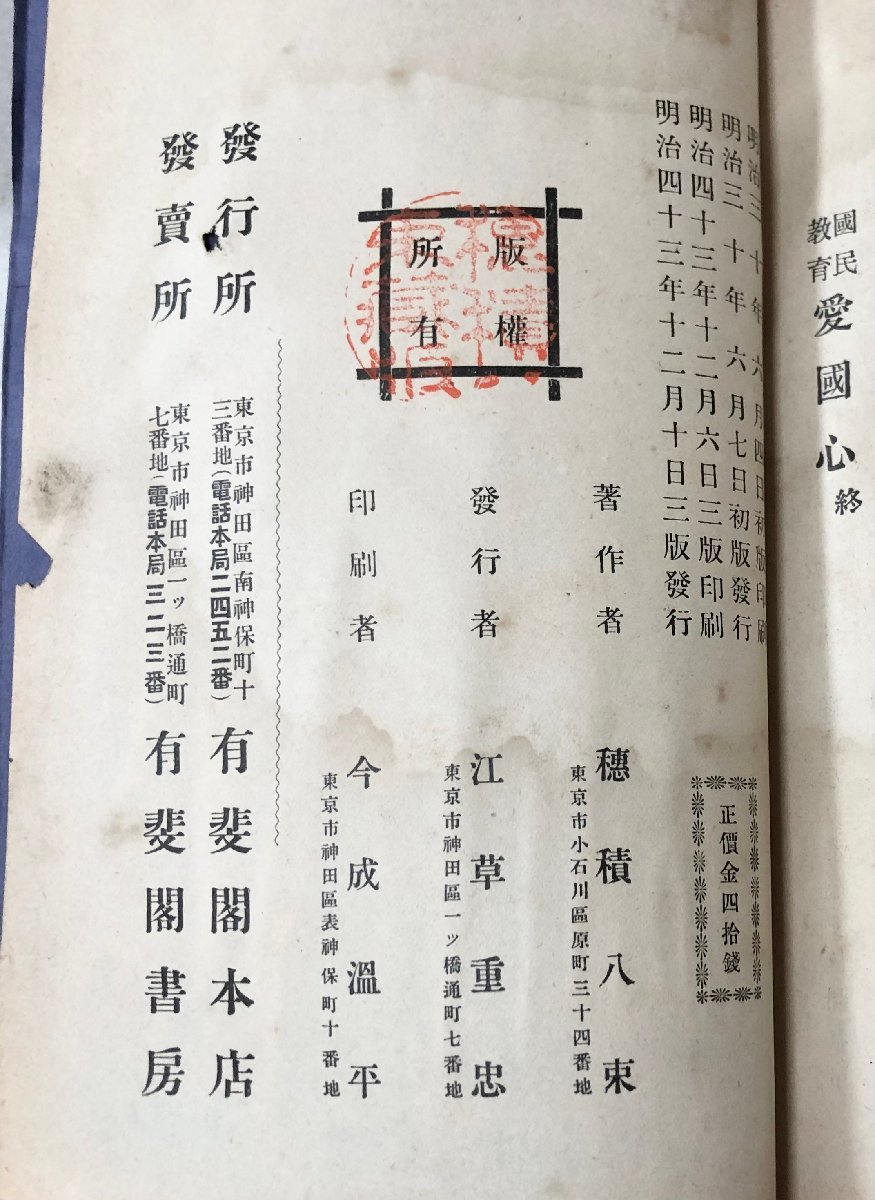 國民
教育
愛國心終
明治三十年六月四日初版印刷
明治三十年六月七日初版發行
明治四十三年十二月六日三版印刷
明治四十三年十二月十日三版發行
正價金四拾錢
版權
所有
著作者 穗積八束
東京市小石川區原町三十四番地
發行者 江草重忠
東京市神田區一ッ橋通町七番地
印刷者 今成溫平
東京市神田區表神保町十番地
發行所
東京市神田區南神保町十
三番地(電話本局二四五二番)
有斐閣本店
發賣所
東京市神田區一ッ橋通町
七番地(電話本局三二三番)
有斐閣書房